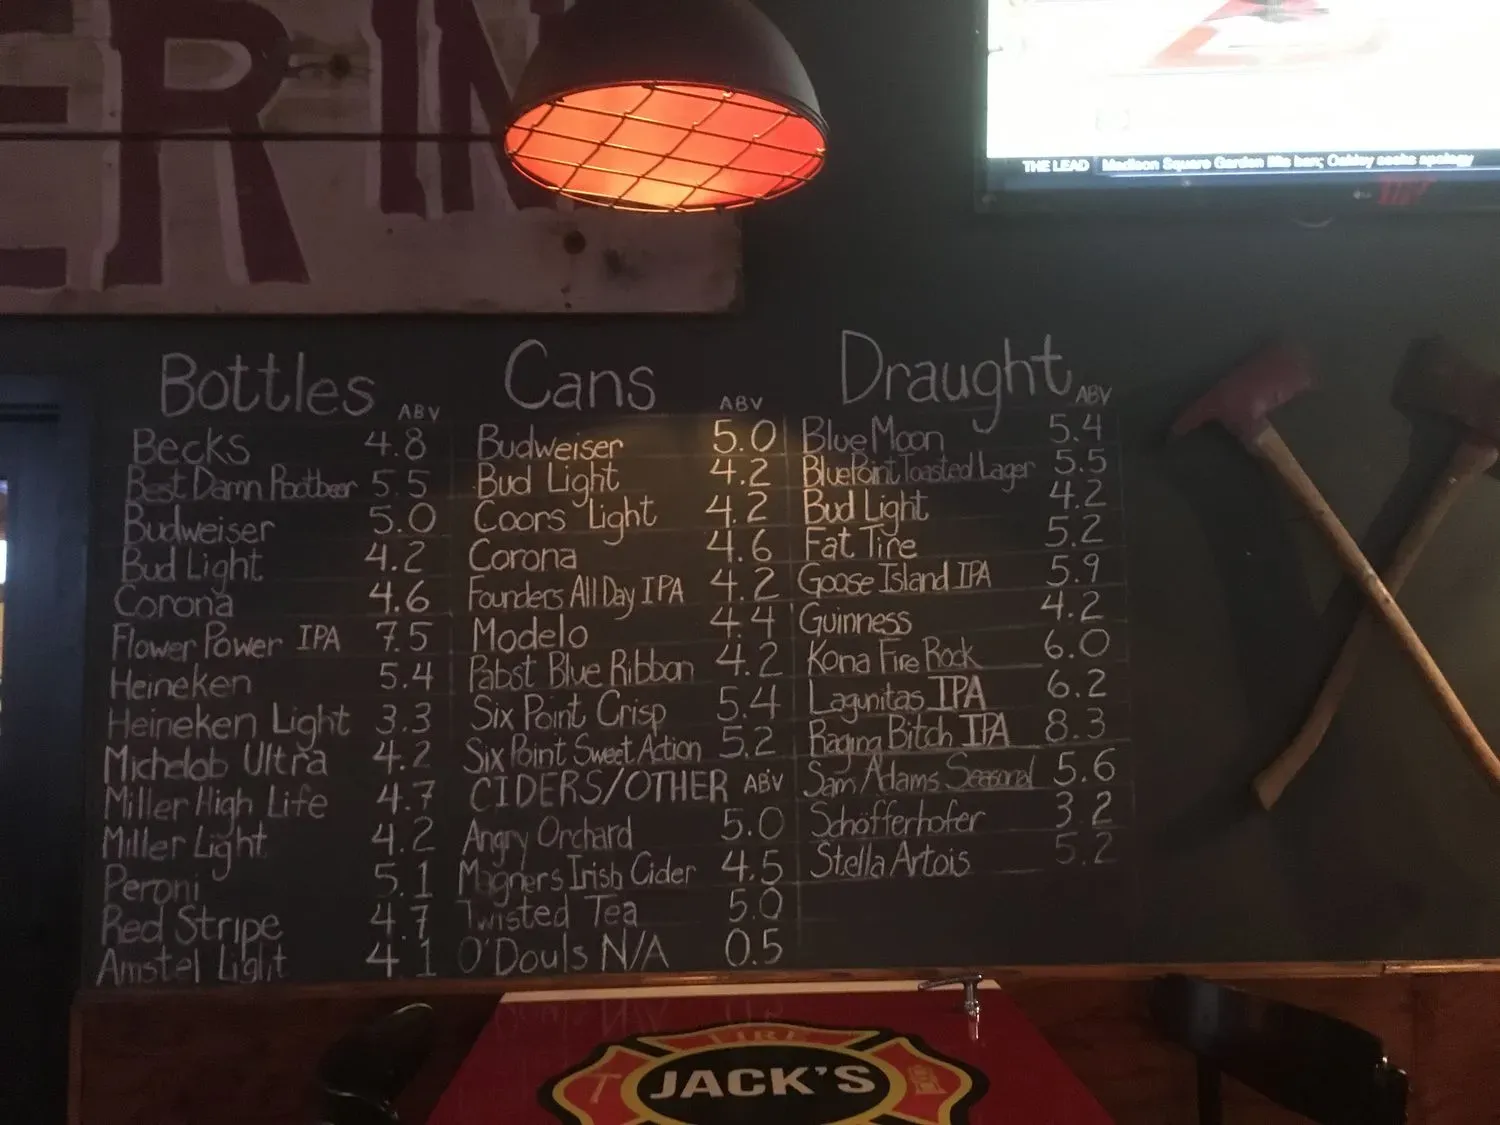 ER IN
THE LEAD Madison Square Garden lifts ban; Oakley seeks apology
Bottles ABV
Becks 4.8
Best Damn Rootbeer 5.5
Budweiser 5.0
Bud Light 4.2
Corona 4.6
Flower Power IPA 7.5
Heineken 5.4
Heineken Light 3.3
Michelob Ultra 4.2
Miller High Life 4.7
Miller Light 4.2
Peroni 5.1
Red Stripe 4.7
Amstel Light 4.1
Cans ABV
Budweiser 5.0
Bud Light 4.2
Coors Light 4.2
Corona 4.6
Founders All Day IPA 4.2
Modelo 4.4
Pabst Blue Ribbon 4.2
Six Point Crisp 5.4
Six Point Sweet Action 5.2
CIDERS/OTHER ABV
Angry Orchard 5.0
Magners Irish Cider 4.5
Twisted Tea 5.0
O'Douls N/A 0.5
Draught ABV
Blue Moon 5.4
BluePoint Toasted Lager 5.5
Bud Light 4.2
Fat Tire 5.2
Goose Island IPA 5.9
Guinness 4.2
Kona Fire Rock 6.0
Lagunitas IPA 6.2
Raging Bitch IPA 8.3
Sam Adams Seasonal 5.6
Schöfferhofer 3.2
Stella Artois 5.2
FIRE
JACK'S